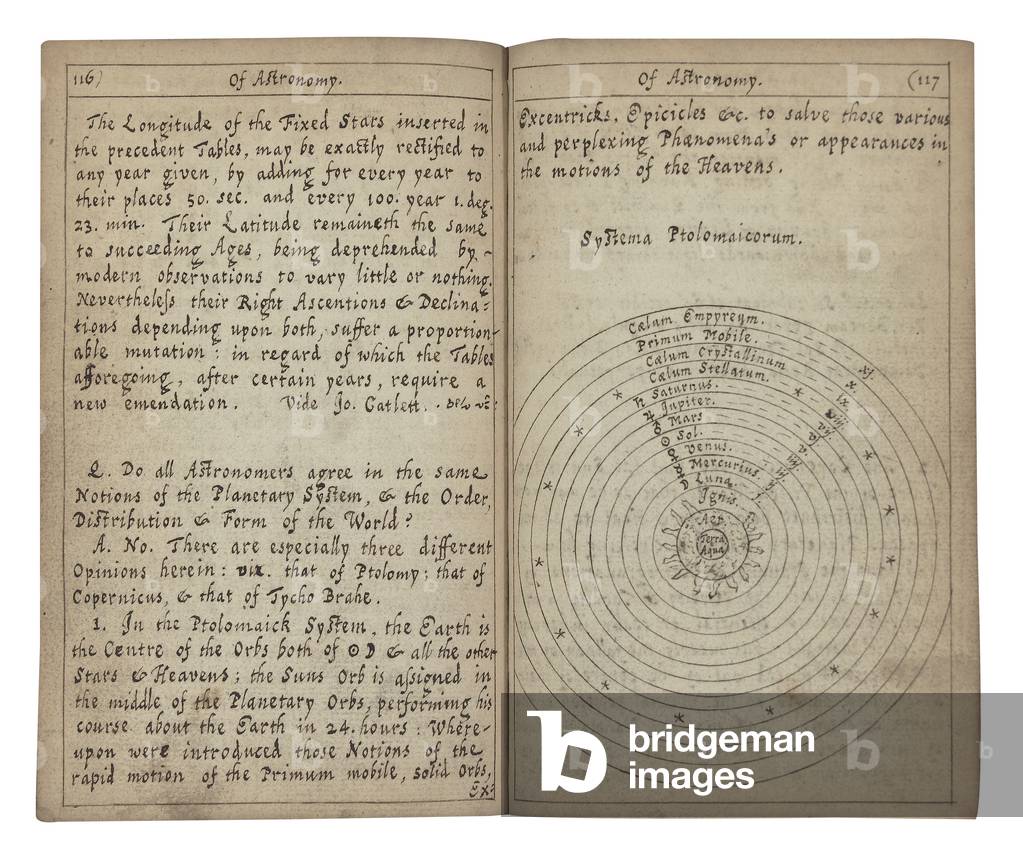 116)
Of Astronomy.
The Longitude of the Fixed Stars inserted in
the precedent Tables, may be exactly rectified to
any year given, by adding for every year to
their places 50. sec. and every 100. year 1. deg.
23. min. Their Latitude remaineth the same
to succeeding Ages, being deprehended by -
modern observations to vary little or nothing.
Nevertheless their Right Ascentions & Declina=
tions depending upon both, suffer a proportion-
able mutation: in regard of which the Tables
afforegoing, after certain years, require a
new emendation. Vide Jo. Catlett.
Q. Do all Astronomers agree in the same
Notions of the Planetary System, & the Order,
Distribution & Form of the World?
A. No. There are especially three different
Opinions herein: viz. that of Ptolomy; that of
Copernicus, & that of Tycho Brahe.
1. In the Ptolomaick System, the Earth is
the Centre of the Orbs both of ☉ ☽ & all the other
Stars & Heavens; the Suns Orb is assigned in
the middle of the Planetary Orbs, performing his
course about the Earth in 24. hours: Where-
upon were introduced those Notions of the
rapid motion of the Primum mobile, solid Orbs,
Ex=
Of Astronomy.
(117
Excentricks, Epicicles &c. to salve those various
and perplexing Phænomena's or appearances in
the motions of the Heavens.
Systema Ptolomaicorum.
Cælum Empyreum.
Primum Mobile.
Cælum Crystallinum
Cælum Stellatum.
♄ Saturnus.
♃ Jupiter.
♂ Mars
☉ Sol.
♀ Venus.
☿ Mercurius.
☽ Luna.
Ignis.
Aer.
Terra
Aqua
xi.
x.
ix.
viii.
vii.
vi.
v.
iv.
iii.
ii.
i.
bridgeman
images